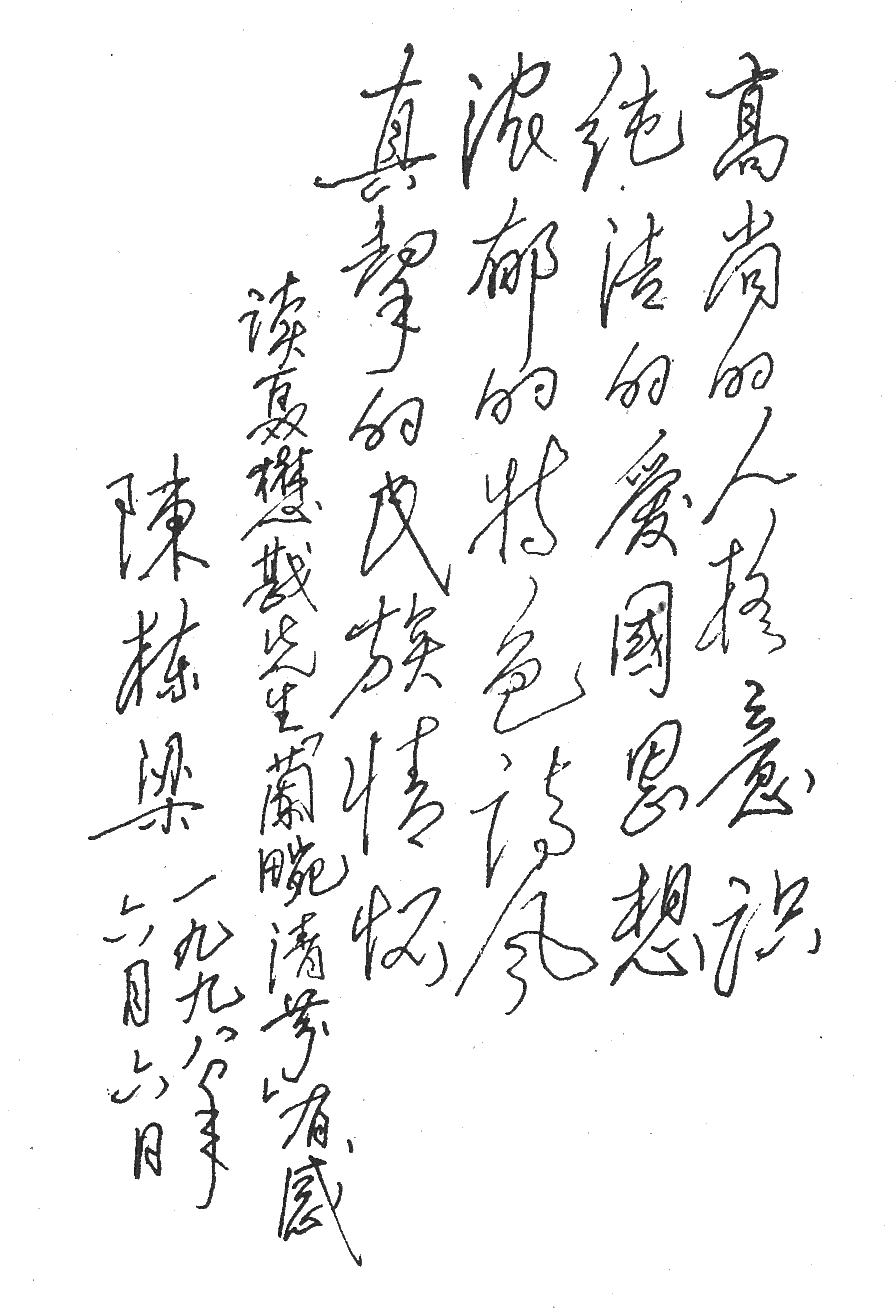 高尚的人格意识
纯洁的爱國思想
浓郁的特色诗风
真挚的民族情怀
读聂懋戡先生“蘭畹清芬”有感
陳栋梁
一九九八年
六月六日